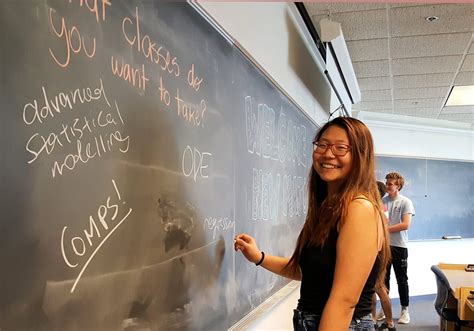 What classes do
you want to take?
advanced
statistical
modelling
ODE
COMPS!
regression
WELCOME
NEW MATH